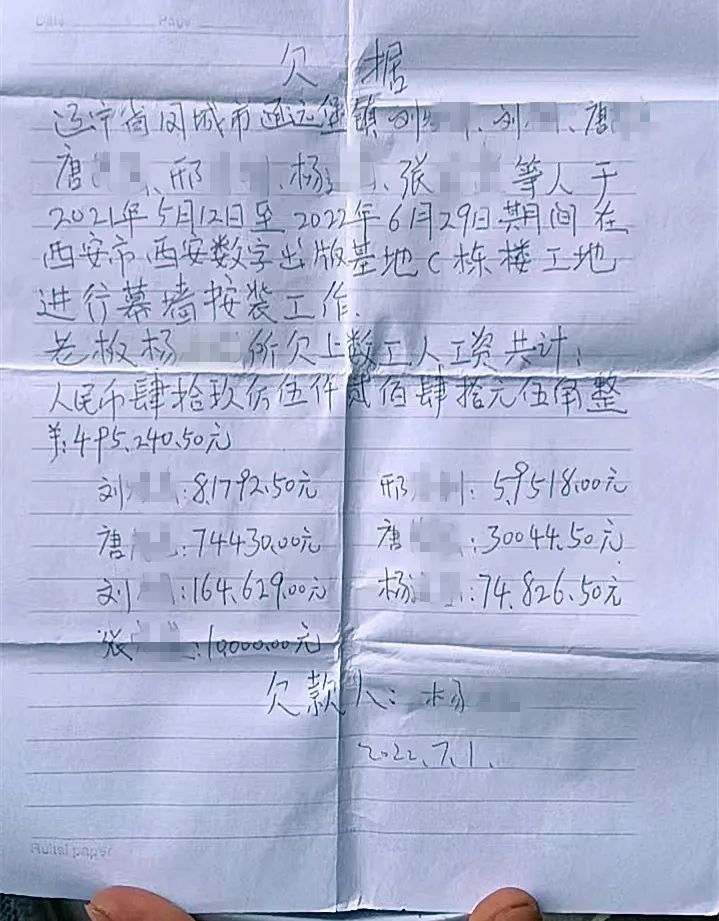 Date Page
欠据
辽宁省凤城市通远堡镇刘、刘、唐
唐、邢、杨、张等人于
2021年5月12日至2022年6月29日期间在
西安市西安数字出版基地C栋楼工地
进行幕墙按装工作.
老板杨所欠上数工人工资共计:
人民币肆拾玖万伍仟贰佰肆拾元伍角整
羊:495.240.50元
刘:8,1792.50元 邢:5,9518.00元
唐:74430.00元 唐:30044.50元
刘:164.629.00元 杨:74.826.50元
张:10,000.00元
欠款人:杨
2022.7.1.
Ruitai paper